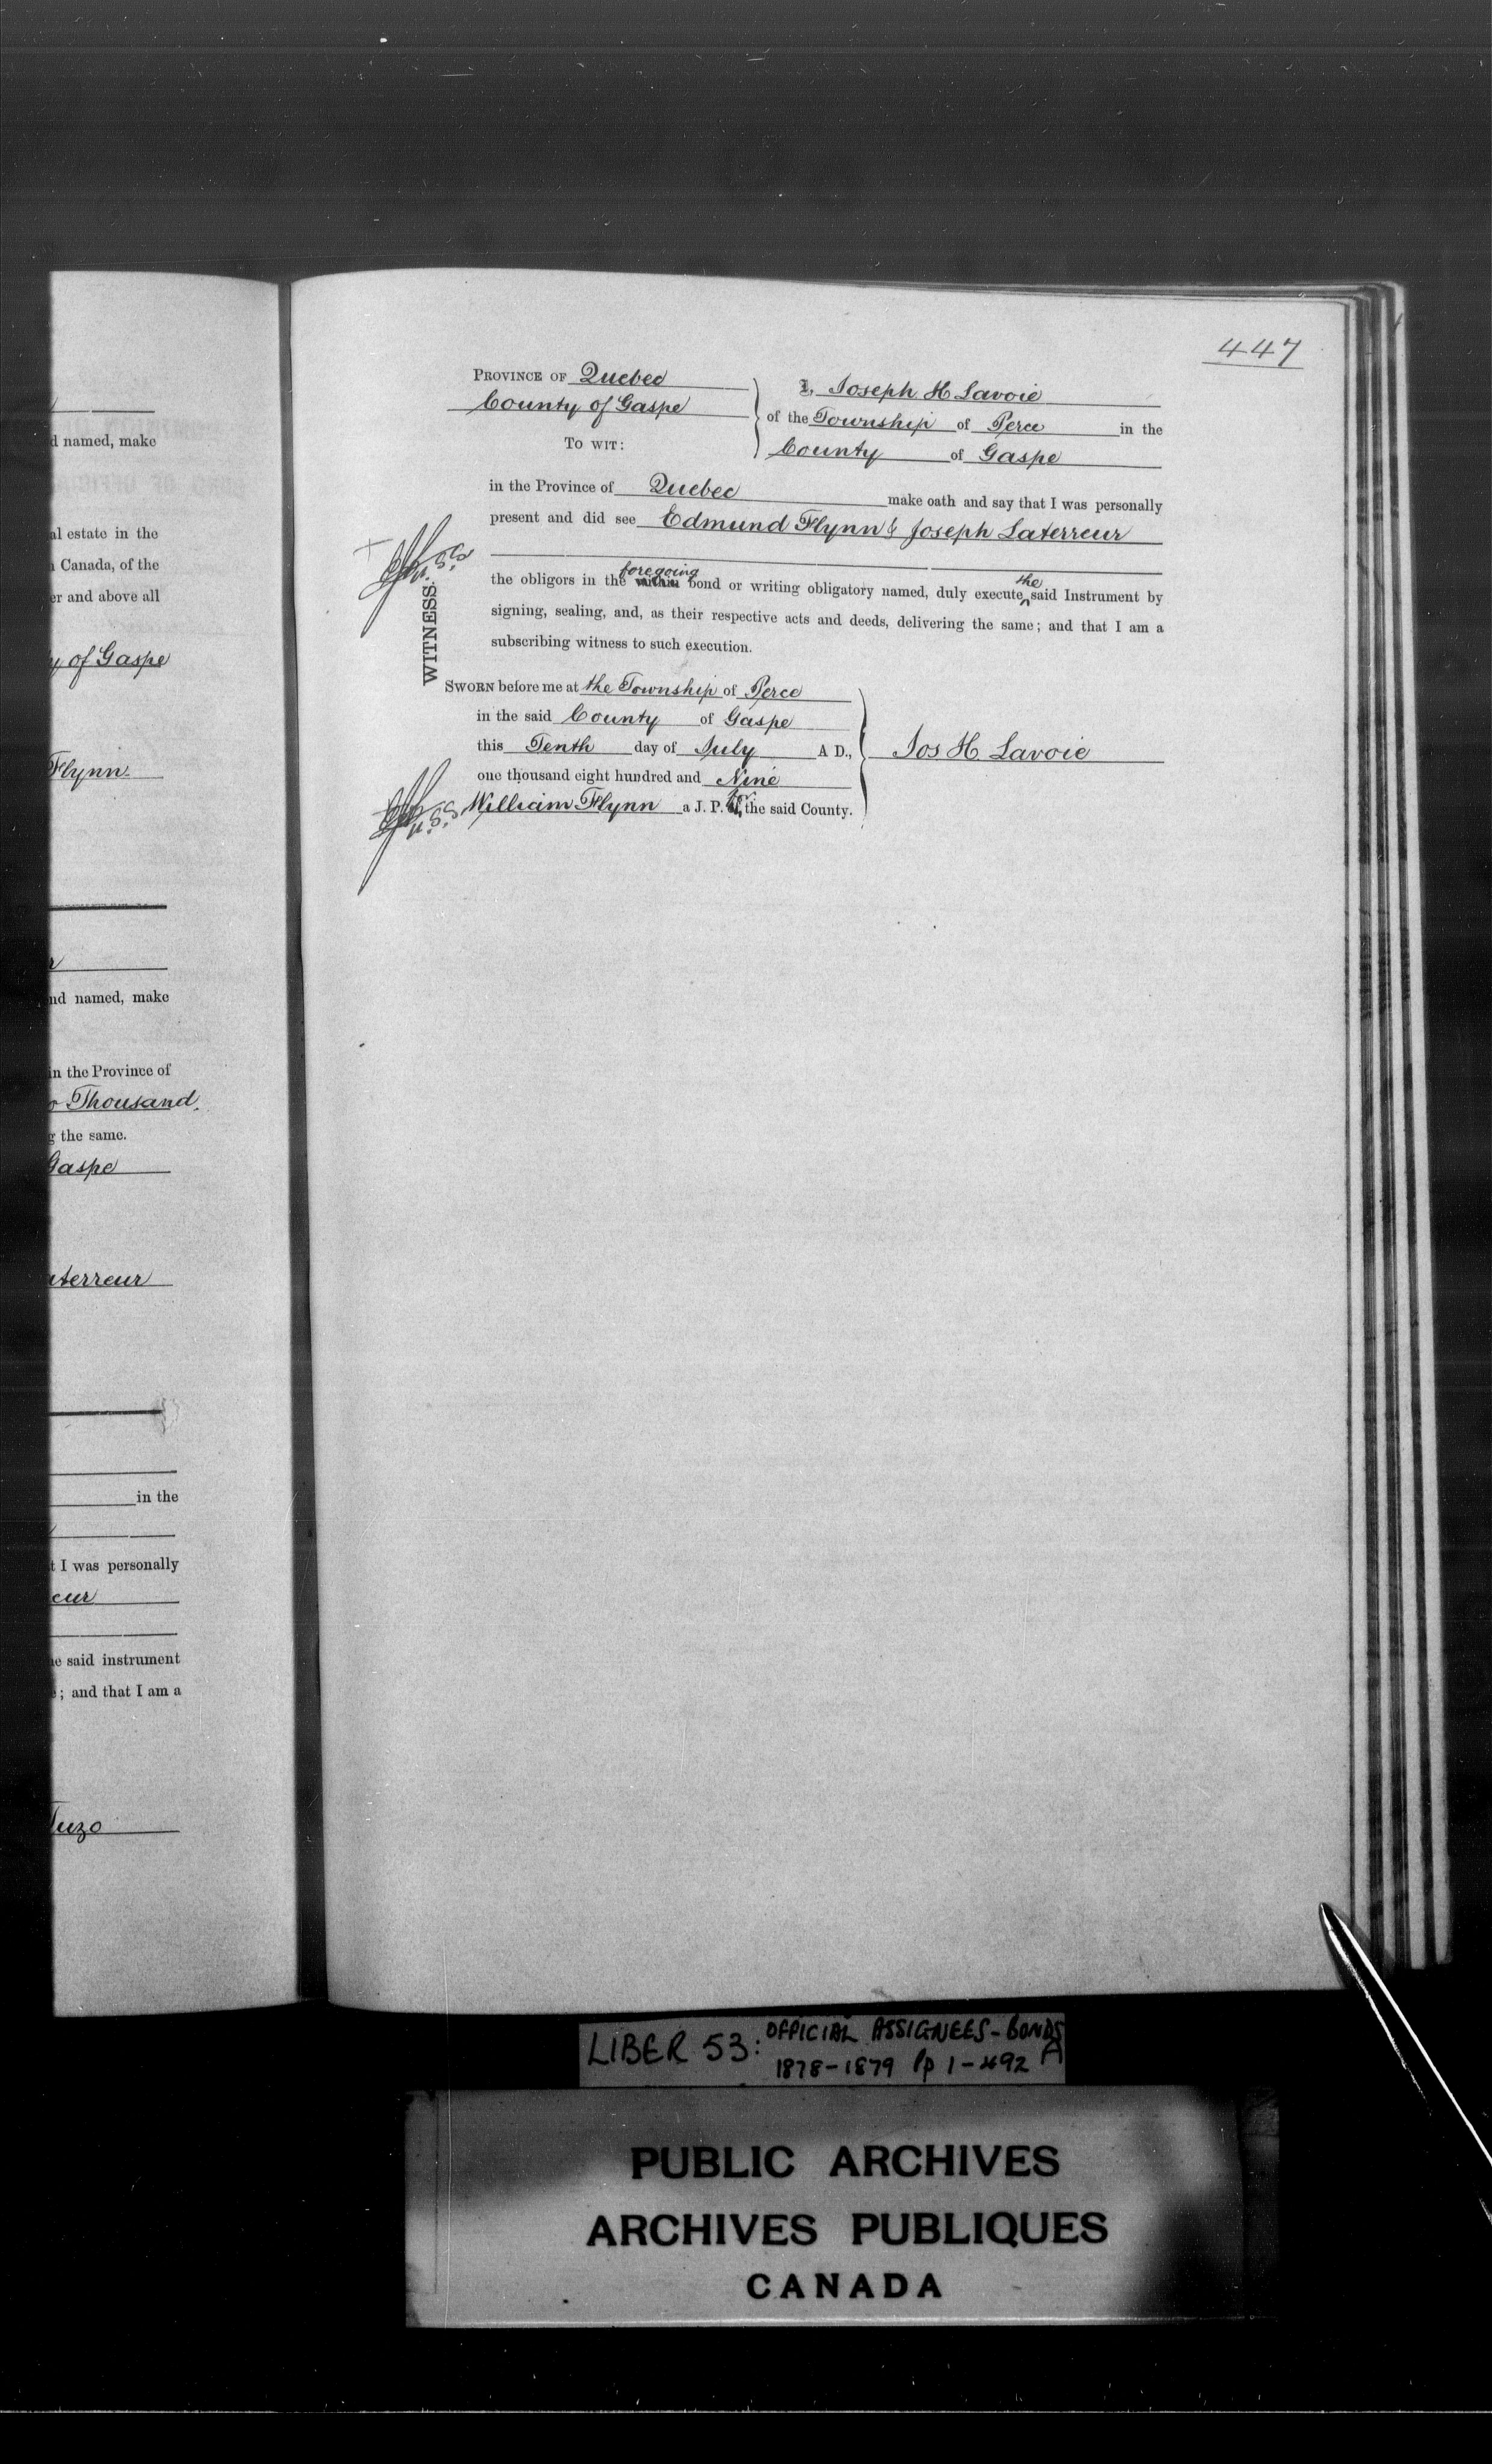 named, make
al estate in the
Canada, of the
er and above all
y of Gaspe
Flynn.
nd named, make
in the Province of
Thousand.
g the same.
Gaspe
aterreur
in the
t I was personally
eur
e said instrument
; and that I am a
Tuzo
447
PROVINCE OF Quebec
County of Gaspe
TO WIT:
I, Joseph H Lavoie
of the Township of Perce in the
County of Gaspe
in the Province of Quebec make oath and say that I was personally
present and did see Edmund Flynn & Joseph Laterreur
foregoing the
the obligors in the within bond or writing obligatory named, duly execute said Instrument by
signing, sealing, and, as their respective acts and deeds, delivering the same; and that I am a
subscribing witness to such execution.
WITNESS.
SWORN before me at the Township of Perce
in the said County of Gaspe
this Tenth day of July A D.,
one thousand eight hundred and Nine
William Flynn a J. P. for the said County.
Jos H. Lavoie
LIBER 53: OFFICIAL ASSIGNEES - BONDS
1878-1879 Pp 1-492 A
PUBLIC ARCHIVES
ARCHIVES PUBLIQUES
CANADA